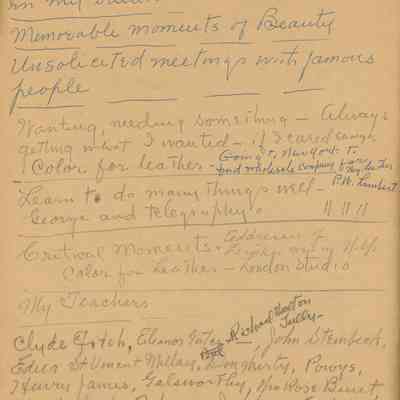 in my
Memorable moments of Beauty
Unsolicited meetings with famous
people
Wanting, needing something — Always
getting what I wanted — if I cared enough
Color for leather — Going to New York to
find wholesale company for
my leather
Learn to do many things well — P.W. Lambert
George and telegraphy. 11.11.11
Critical Moments. Addresses of
in N.Y.
Color for Leather — London Studio
My Teachers
Clyde Fitch, Eleanor Gates — Richard Walton
Tully — John Steinbeck,
Edna St Vincent Millay, Dougherty, Powys,
Henry James, Galsworthy, Wm Rose Benet,